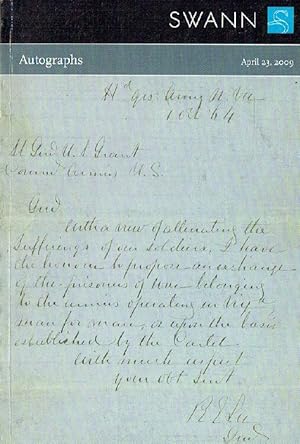 SWANN
Autographs April 23, 2009
Hd Qrs Army N. Va
1 Oct 64
Lt Genl U. S. Grant
Comm Armies U. S.
Genl
With a view of alleviating the
sufferings of our soldiers, I have
the honour to propose an exchange
of the prisoners of war belonging
to the armies operating in Virga
man for man, or upon the basis
established by the Cartel
With much respect
your obt Servt
R E Lee
Genl